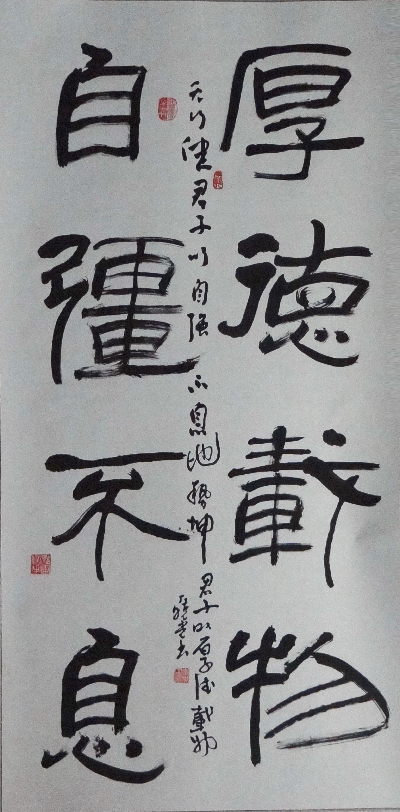 厚德載物
自彊不息
天行健君子以自强不息地势坤
君子以厚德載物